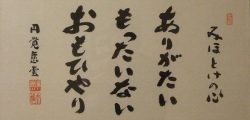 みほとけの心
ありがたい
もったいない
おもひやり
円覚慈雲